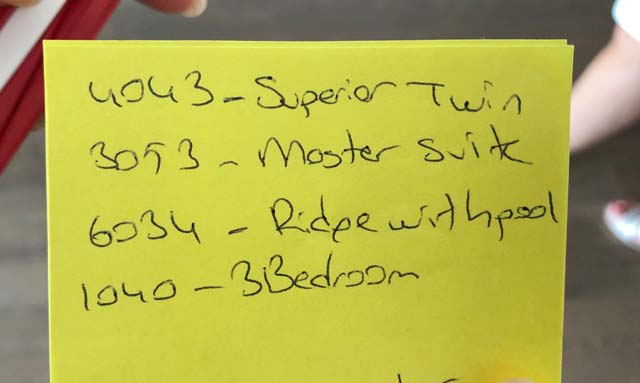 4043 - Superior Twin
3053 - Master Suite
6034 - Ridge with pool
1040 - 3 Bedroom